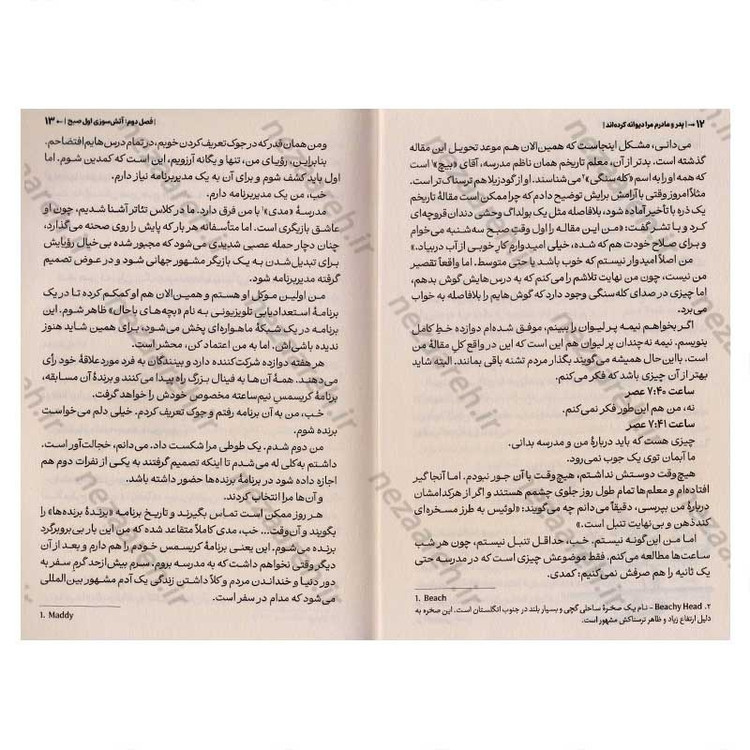 ۱۲ → | پدر و مادرم مرا دیوانه کرده‌اند |
می‌دانی، مشکل اینجاست که همین‌الان هم موعد تحویل این مقاله
گذشته است. بدتر از آن، معلم تاریخم همان ناظم مدرسه، آقای «بیچ»۱ است
که همه او را به اسم «کله‌سنگی»۲ می‌شناسند. او از گودزیلا هم ترسناک‌تر است.
مثلاً امروز وقتی با آرامش برایش توضیح دادم که چرا ممکن است مقالهٔ تاریخم
یک ذره با تأخیر آماده شود، بلافاصله مثل یک بولداگ وحشی دندان قروچه‌ای
کرد و با تشر گفت: «من این مقاله را اول وقت صبح سه‌شنبه می‌خوام
و برای صلاح خودت هم که شده، خیلی امیدوارم کار خوبی از آب دربیاد.»
من اصلاً امیدوار نیستم که خوب باشد یا حتی متوسط، اما واقعاً تقصیر
من نیست، چون من نهایت تلاشم را می‌کنم که به درس‌هایش گوش بدهم،
اما چیزی در صدای کله‌سنگی وجود دارد که گوش‌هایم را بلافاصله به خواب
می‌برد.
اگر بخواهم نیمه پر لیوان را ببینم، موفق شده‌ام دوازده خطِ کامل
بنویسم. نیمه نه‌چندان پر لیوان هم این است که این در واقع کلِ مقالهٔ من
است. با این‌حال همیشه می‌گویند بگذار مردم تشنه باقی بمانند. البته شاید
بهتر از آن چیزی باشد که فکر می‌کنم.
ساعت ۷:۴۰ عصر
نه، من هم این‌طور فکر نمی‌کنم.
ساعت ۷:۴۱ عصر
چیزی هست که باید دربارهٔ من و مدرسه بدانی.
ما آبمان توی یک جوب نمی‌رود.
هیچ‌وقت دوستش نداشتم، هیچ‌وقت با آن جور نبودم. اما آنجا گیر
افتاده‌ام و معلم‌ها تمام طول روز جلوی چشمم هستند و اگر از هرکدامشان
دربارهٔ من بپرسی، دقیقاً می‌دانم چه می‌گویند: «لوئیس به طرز مسخره‌ای
کندذهن و بی‌نهایت تنبل است.»
اما من این‌گونه نیستم. خب، حداقل تنبل نیستم، چون هر شب
ساعت‌ها مطالعه می‌کنم. فقط موضوعش چیزی است که در مدرسه حتی
یک ثانیه را هم صرفش نمی‌کنیم: کمدی.
1. Beach
۲. Beachy Head – نام یک صخرهٔ ساحلی گچی و بسیار بلند در جنوب انگلستان است. این صخره به
دلیل ارتفاع زیاد و ظاهر ترسناکش مشهور است.
| فصل دوم: آتش‌سوزی اول صبح | ← ۱۳
و من همان قدر که در جوک تعریف کردن خوبم، در تمام درس‌هایم افتضاحم.
بنابراین، رؤیای من، تنها و یگانه آرزویم، این است که کمدین شوم. اما
اول باید کشف شوم و برای آن به یک مدیربرنامه نیاز دارم.
خب، من یک مدیربرنامه دارم.
مدرسهٔ «مدی»۱ با من فرق دارد. ما در کلاس تئاتر آشنا شدیم، چون او
عاشق بازیگری است. اما متأسفانه هر بار که پایش را روی صحنه می‌گذارد،
چنان دچار حمله عصبی شدیدی می‌شود که مجبور شده بی‌خیال رؤیایش
برای تبدیل‌شدن به یک بازیگر مشهور جهانی شود و در عوض تصمیم
گرفته مدیربرنامه شود.
من اولین موکل او هستم و همین‌الان هم او کمکم کرده تا در یک
برنامهٔ استعدادیابی تلویزیونی به نام «بچه‌های باحال» ظاهر شوم. این
برنامه در یک شبکهٔ ماهواره‌ای پخش می‌شود، برای همین شاید هنوز
ندیده باشی‌اش. اما به من اعتماد کن، محشر است.
هر هفته دوازده شرکت‌کننده دارد و بینندگان به فرد موردعلاقهٔ خود رأی
می‌دهند. همهٔ آن‌ها به فینال بزرگ راه پیدا می‌کنند و برندهٔ آن مسابقه،
برنامهٔ کریسمسی نیم‌ساعته مخصوص خودش را خواهد گرفت.
خب، من به آن برنامه رفتم و جوک تعریف کردم. خیلی دلم می‌خواست
برنده شوم.
من دوم شدم. یک طوطی مرا شکست داد. می‌دانم، خجالت‌آور است.
داشتم به‌کلی له می‌شدم تا اینکه تصمیم گرفتند به یکی از نفرات دوم هم
اجازه داده شود در برنامهٔ برنده‌ها حضور داشته باشد.
و آن‌ها مرا انتخاب کردند.
هر روز ممکن است تماس بگیرند و تاریخ برنامهٔ «برندهٔ برنده‌ها» را
بگویند و آن‌وقت... خب، مدی کاملاً متقاعد شده که من این بار بی‌بروبرگرد
برنده می‌شوم. این یعنی برنامهٔ کریسمس خودم را هم دارم و بعد از آن
دیگر وقتی نخواهم داشت که به مدرسه بروم. سرم بیش‌ازحد گرم سفر به
دور دنیا و خنداندن مردم و کلاً داشتن زندگی یک آدم مشهور بین‌المللی
می‌شود که مدام در سفر است.
1. Maddy
nezareh.ir